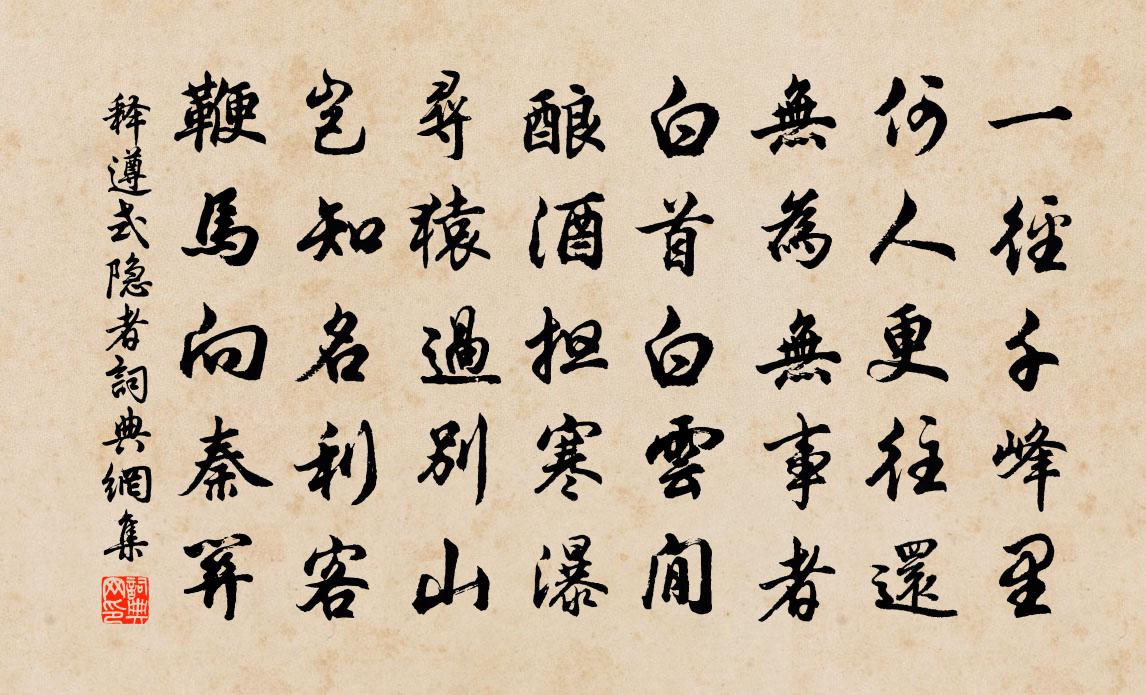 一徑千峰里
何人更往還
無為無事者
白首白雲間
酿酒担寒瀑
尋猿過別山
岂知名利客
鞭馬向秦關
释遵式隐者詞典網集
詞典網印